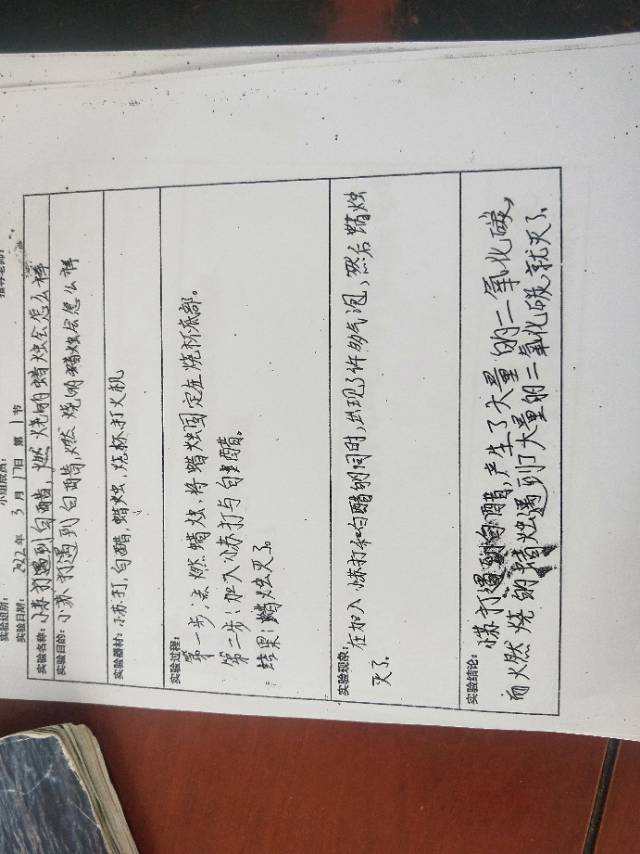 实验组别： 小组成员： 指导老师：
实验日期： 2022 年 3 月 17日 第 1 节
实验名称：小苏打遇到白醋，燃烧的蜡烛会怎么样
实验目的：小苏打遇到白醋，燃烧的蜡烛会怎么样
实验器材：小苏打，白醋，蜡烛，烧杯，打火机
实验过程：
第一步：点燃蜡烛，将蜡烛固定在烧杯底部。
第二步：加入小苏打与白醋。
结果：蜡烛灭了。
实验现象：在加入小苏打和白醋的同时，出现了许多气泡，然后蜡烛
灭了。
实验结论：小苏打遇到白醋，产生了大量的二氧化碳，
而火燃烧的蜡烛遇到了大量的二氧化碳，就灭了。